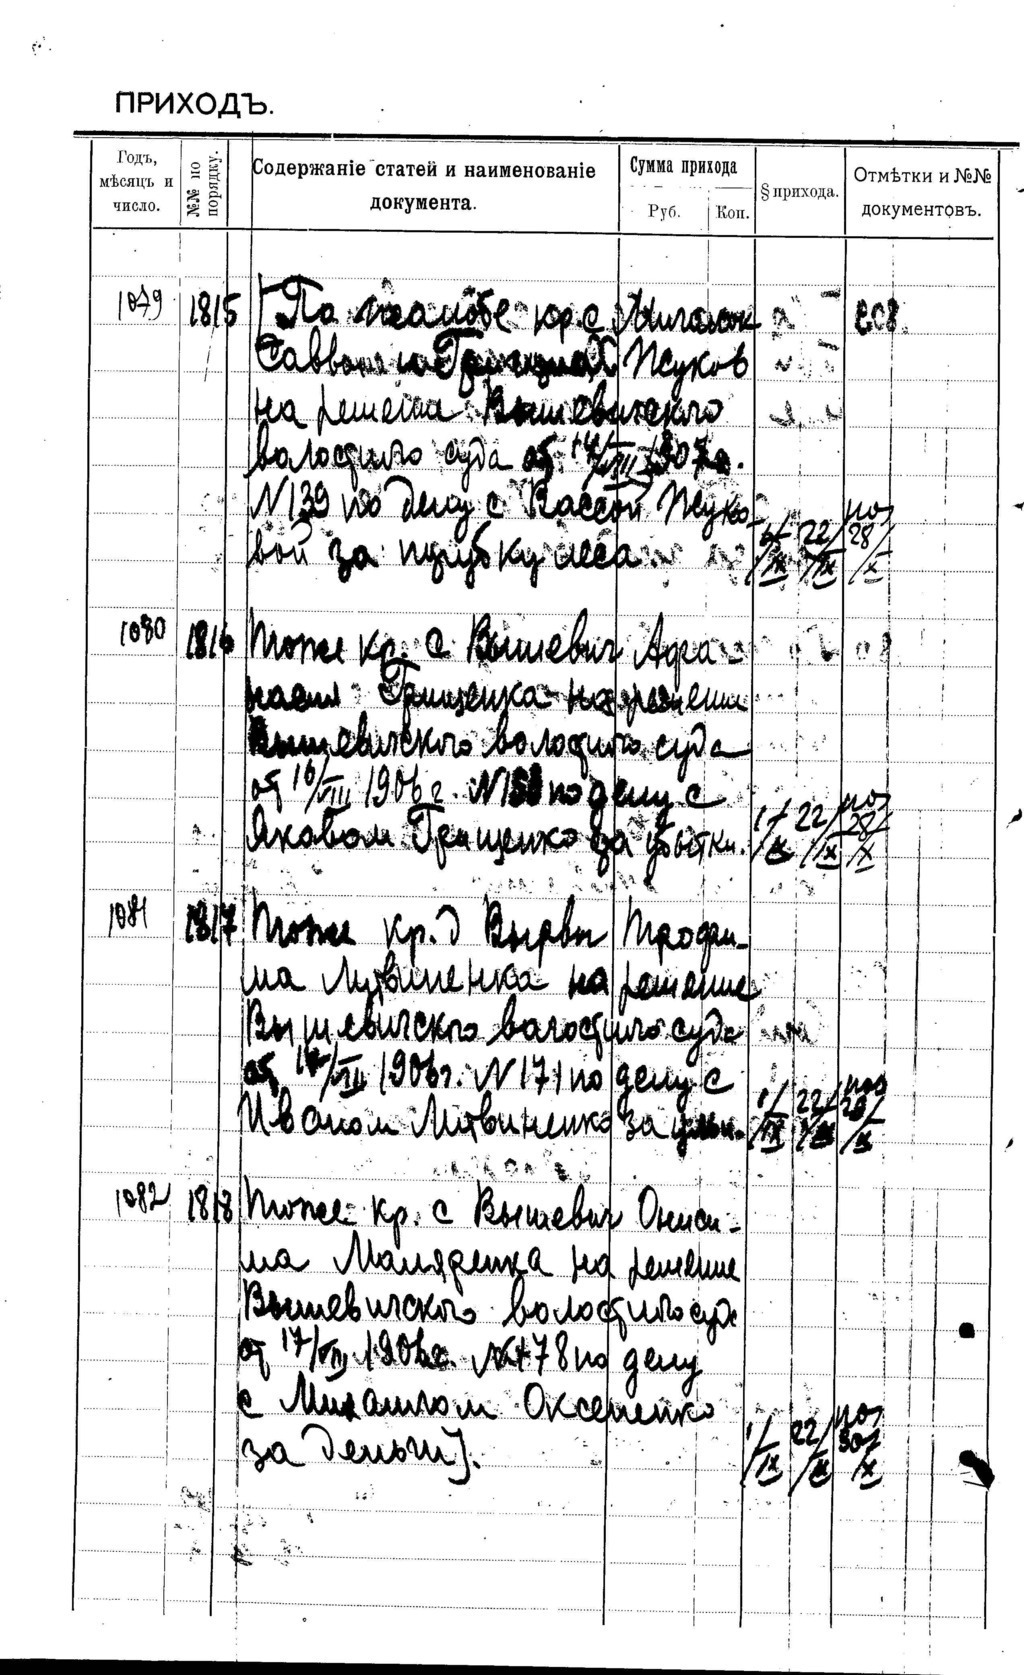 ПРИХОДЪ.
Годъ, мѣсяцъ и число.
№№ по порядку.
Содержаніе статей и наименованіе документа.
Сумма прихода
Руб. Коп.
§ прихода.
Отмѣтки и №№ документовъ.
1079 1815 [По жалобе кр. с
Саввы и Григория Жуков
на решение Вышевичского
волостного суда от 14/VIII 1907г.
N139 по делу с Вассой Жуко
вой за порубку леса.
22/IX по 28/X
1080 1816 Тоже кр. с Вышевич Афа-
насия Грищенка на решение
Вышевичского волостного суда
от 16/VIII 1906г. N158 по делу с
Яковом Грищенко за убытки.
1/IX 22/IX по 28/X
1081 1817 Тоже кр. д Вырвы Трофи-
ма Литвиненка на решение
Вышевичского волостного суда
от 17/VIII 1906г. N171 по делу с
Иваном Литвиненко за
1/IX 22/IX по 28/X
1082 1818 Тоже кр. с Вышевич Ониси-
ма Маляренка на решение
Вышевичского волостного суда
от 17/VIII 1906г. N178 по делу
с Михаилом Оксененко
за деньги].
1/IX 22/IX по 30/X